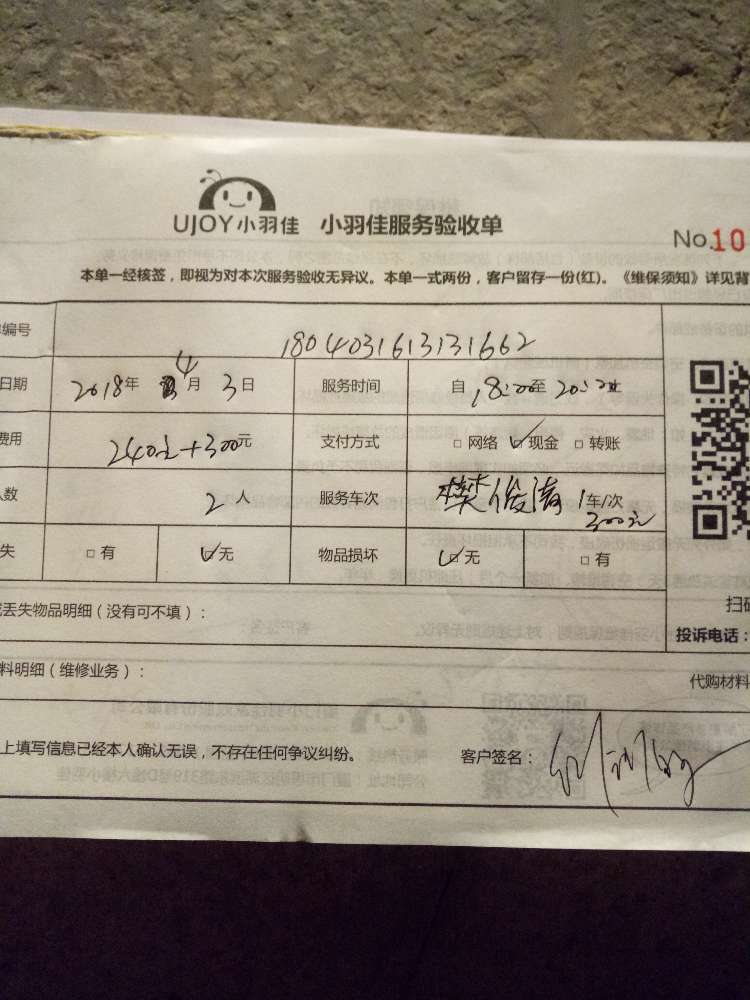 UJOY小羽佳 小羽佳服务验收单
No.10
本单一经核签，即视为对本次服务验收无异议。本单一式两份，客户留存一份(红)。《维保须知》详见背
编号 1804031613131662
日期 2018年 4月 3日 服务时间 自 18:00至
费用 240元+300元 支付方式 □网络 ☑现金 □转账
人数 2人 服务车次 樊俊涛 1车/次
300元
失 □有 ☑无 物品损坏 ☑无 □有
丢失物品明细（没有可不填）：
扫码
投诉电话：
料明细（维修业务）：
代购材料
上填写信息已经本人确认无误，不存在任何争议纠纷。 客户签名：